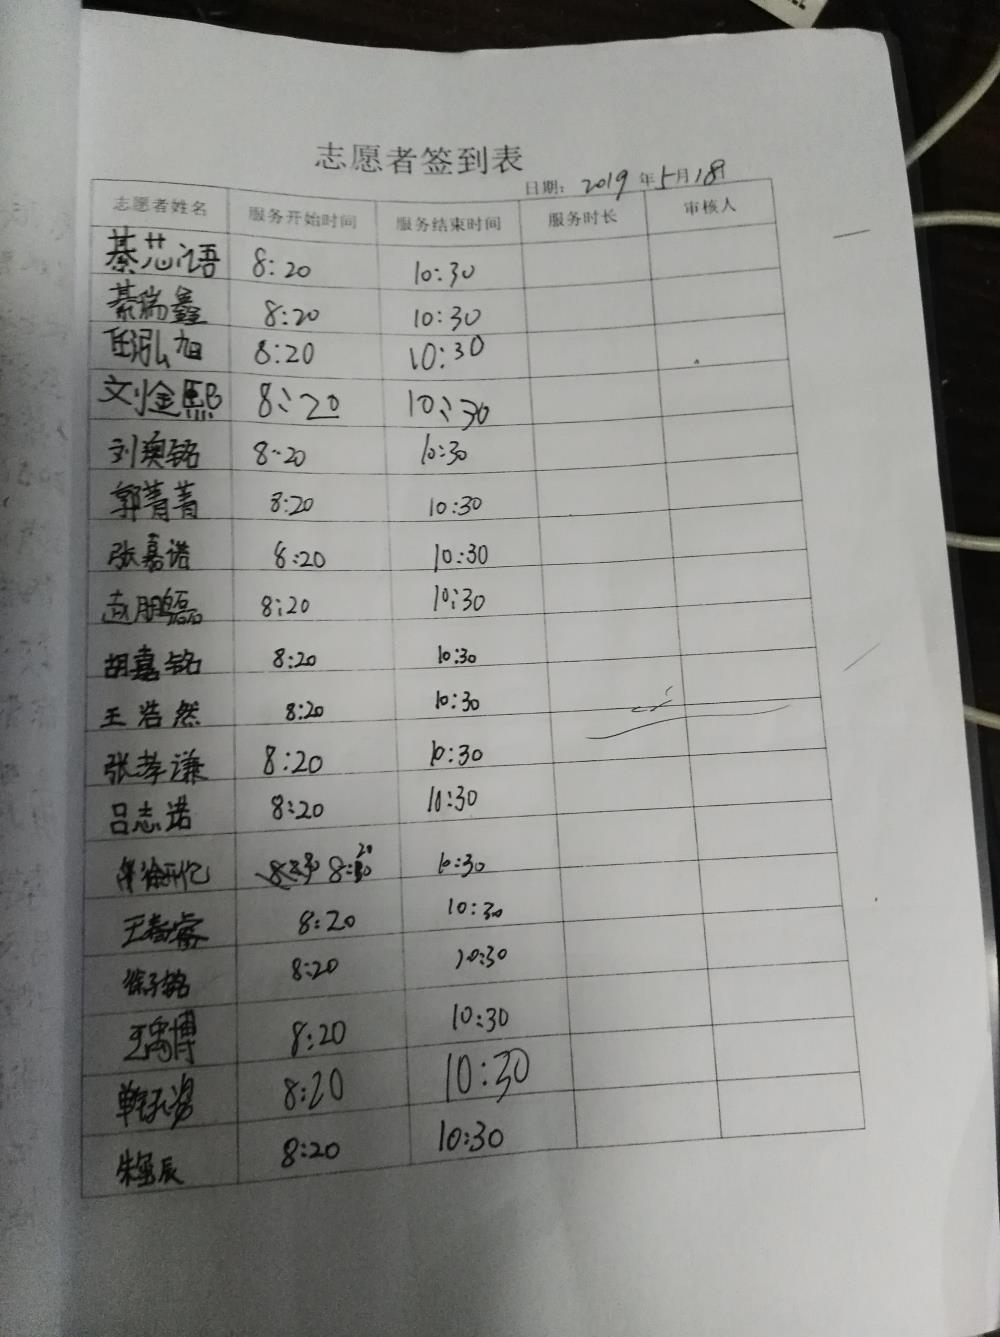 志愿者签到表
日期: 2019 年 5月 18日
志愿者姓名 服务开始时间 服务结束时间 服务时长 审核人
綦芯语 8:20 10:30
綦瑞鑫 8:20 10:30
任泓旭 8:20 10:30
刘金熙 8:20 10:30
刘奥铭 8:20 10:30
郭菁菁 8:20 10:30
张嘉诺 8:20 10:30
赵鹏磊 8:20 10:30
胡嘉铭 8:20 10:30
王浩然 8:20 10:30
张孝谦 8:20 10:30
吕志诺 8:20 10:30
8:20 10:30
王春睿 8:20 10:30
徐子铭 8:20 10:30
王禹博 8:20 10:30
8:20 10:30
朱 辰 8:20 10:30